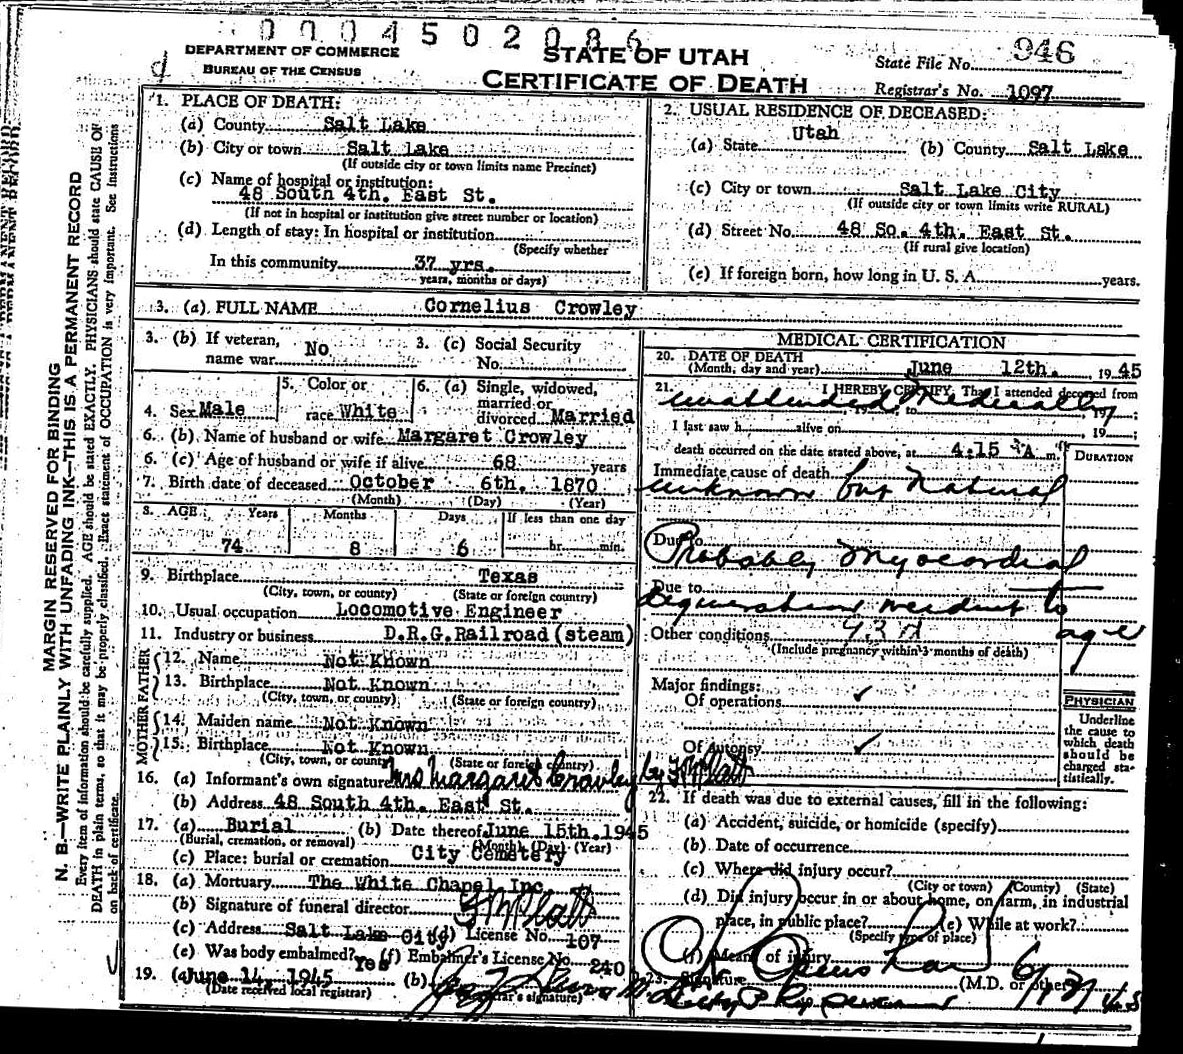 0004502086
DEPARTMENT OF COMMERCE
BUREAU OF THE CENSUS
STATE OF UTAH
CERTIFICATE OF DEATH
State File No. 946
Registrar's No. 1097
MARGIN RESERVED FOR BINDING
N. B.—WRITE PLAINLY WITH UNFADING INK—THIS IS A PERMANENT RECORD
Every item of information should be carefully supplied. AGE should be stated EXACTLY. PHYSICIANS should state CAUSE OF
DEATH in plain terms, so that it may be properly classified. Exact statement of OCCUPATION is very important. See Instructions
on back of certificate.
1. PLACE OF DEATH:
(a) County Salt Lake
(b) City or town Salt Lake
(If outside city or town limits name Precinct)
(c) Name of hospital or institution:
48 South 4th. East St.
(If not in hospital or institution give street number or location)
(d) Length of stay: In hospital or institution
(Specify whether
In this community 37 yrs.
years, months or days)
2. USUAL RESIDENCE OF DECEASED:
(a) State Utah (b) County Salt Lake
(c) City or town Salt Lake City
(If outside city or town limits write RURAL)
(d) Street No. 48 So. 4th. East St.
(If rural give location)
(e) If foreign born, how long in U. S. A. years.
3. (a) FULL NAME Cornelius Crowley
3. (b) If veteran, name war No
3. (c) Social Security No.
4. Sex Male
5. Color or race White
6. (a) Single, widowed, married or divorced Married
6. (b) Name of husband or wife Margaret Crowley
6. (c) Age of husband or wife if alive 68 years
7. Birth date of deceased October 6th. 1870
(Month) (Day) (Year)
8. AGE Years Months Days If less than one day
74 8 6 hr. min.
9. Birthplace Texas
(City, town, or county) (State or foreign country)
10. Usual occupation Locomotive Engineer
11. Industry or business D.R.G.Railroad (steam)
FATHER
12. Name Not Known
13. Birthplace Not Known
(City, town, or county) (State or foreign country)
MOTHER
14. Maiden name Not Known
15. Birthplace Not Known
(City, town, or county) (State or foreign country)
16. (a) Informant's own signature Mrs Margaret Crowley by
(b) Address 48 South 4th. East St.
17. (a) Burial (b) Date thereof June 15th. 1945
(Burial, cremation, or removal) (Month) (Day) (Year)
(c) Place: burial or cremation City Cemetery
18. (a) Mortuary The White Chapel Inc
(b) Signature of funeral director
(c) Address Salt Lake City (d) License No. 107
(e) Was body embalmed? Yes (f) Embalmer's License No. 240
19. (a) June 14, 1945 (b)
(Date received local registrar) (Registrar's signature)
MEDICAL CERTIFICATION
20. DATE OF DEATH
(Month, day and year) June 12th. , 1945
21. I HEREBY CERTIFY, That I attended deceased from
unattended medically
, 19 , to , 19 ;
I last saw h alive on , 19 ;
death occurred on the date stated above, at 4:15 A m.
DURATION
Immediate cause of death
unknown but natural
Due to
Probably myocardial
Due to
degeneration incident to
age
Other conditions 93d
(Include pregnancy within 3 months of death)
Major findings:
Of operations ✓
Of autopsy ✓
PHYSICIAN
Underline
the cause to
which death
should be
charged sta-
tistically.
22. If death was due to external causes, fill in the following:
(a) Accident, suicide, or homicide (specify)
(b) Date of occurrence
(c) Where did injury occur?
(City or town) (County) (State)
(d) Did injury occur in or about home, on farm, in industrial
place, in public place? (e) While at work?
(Specify type of place)
(f) Means of injury
23. Signature (M.D. or other)